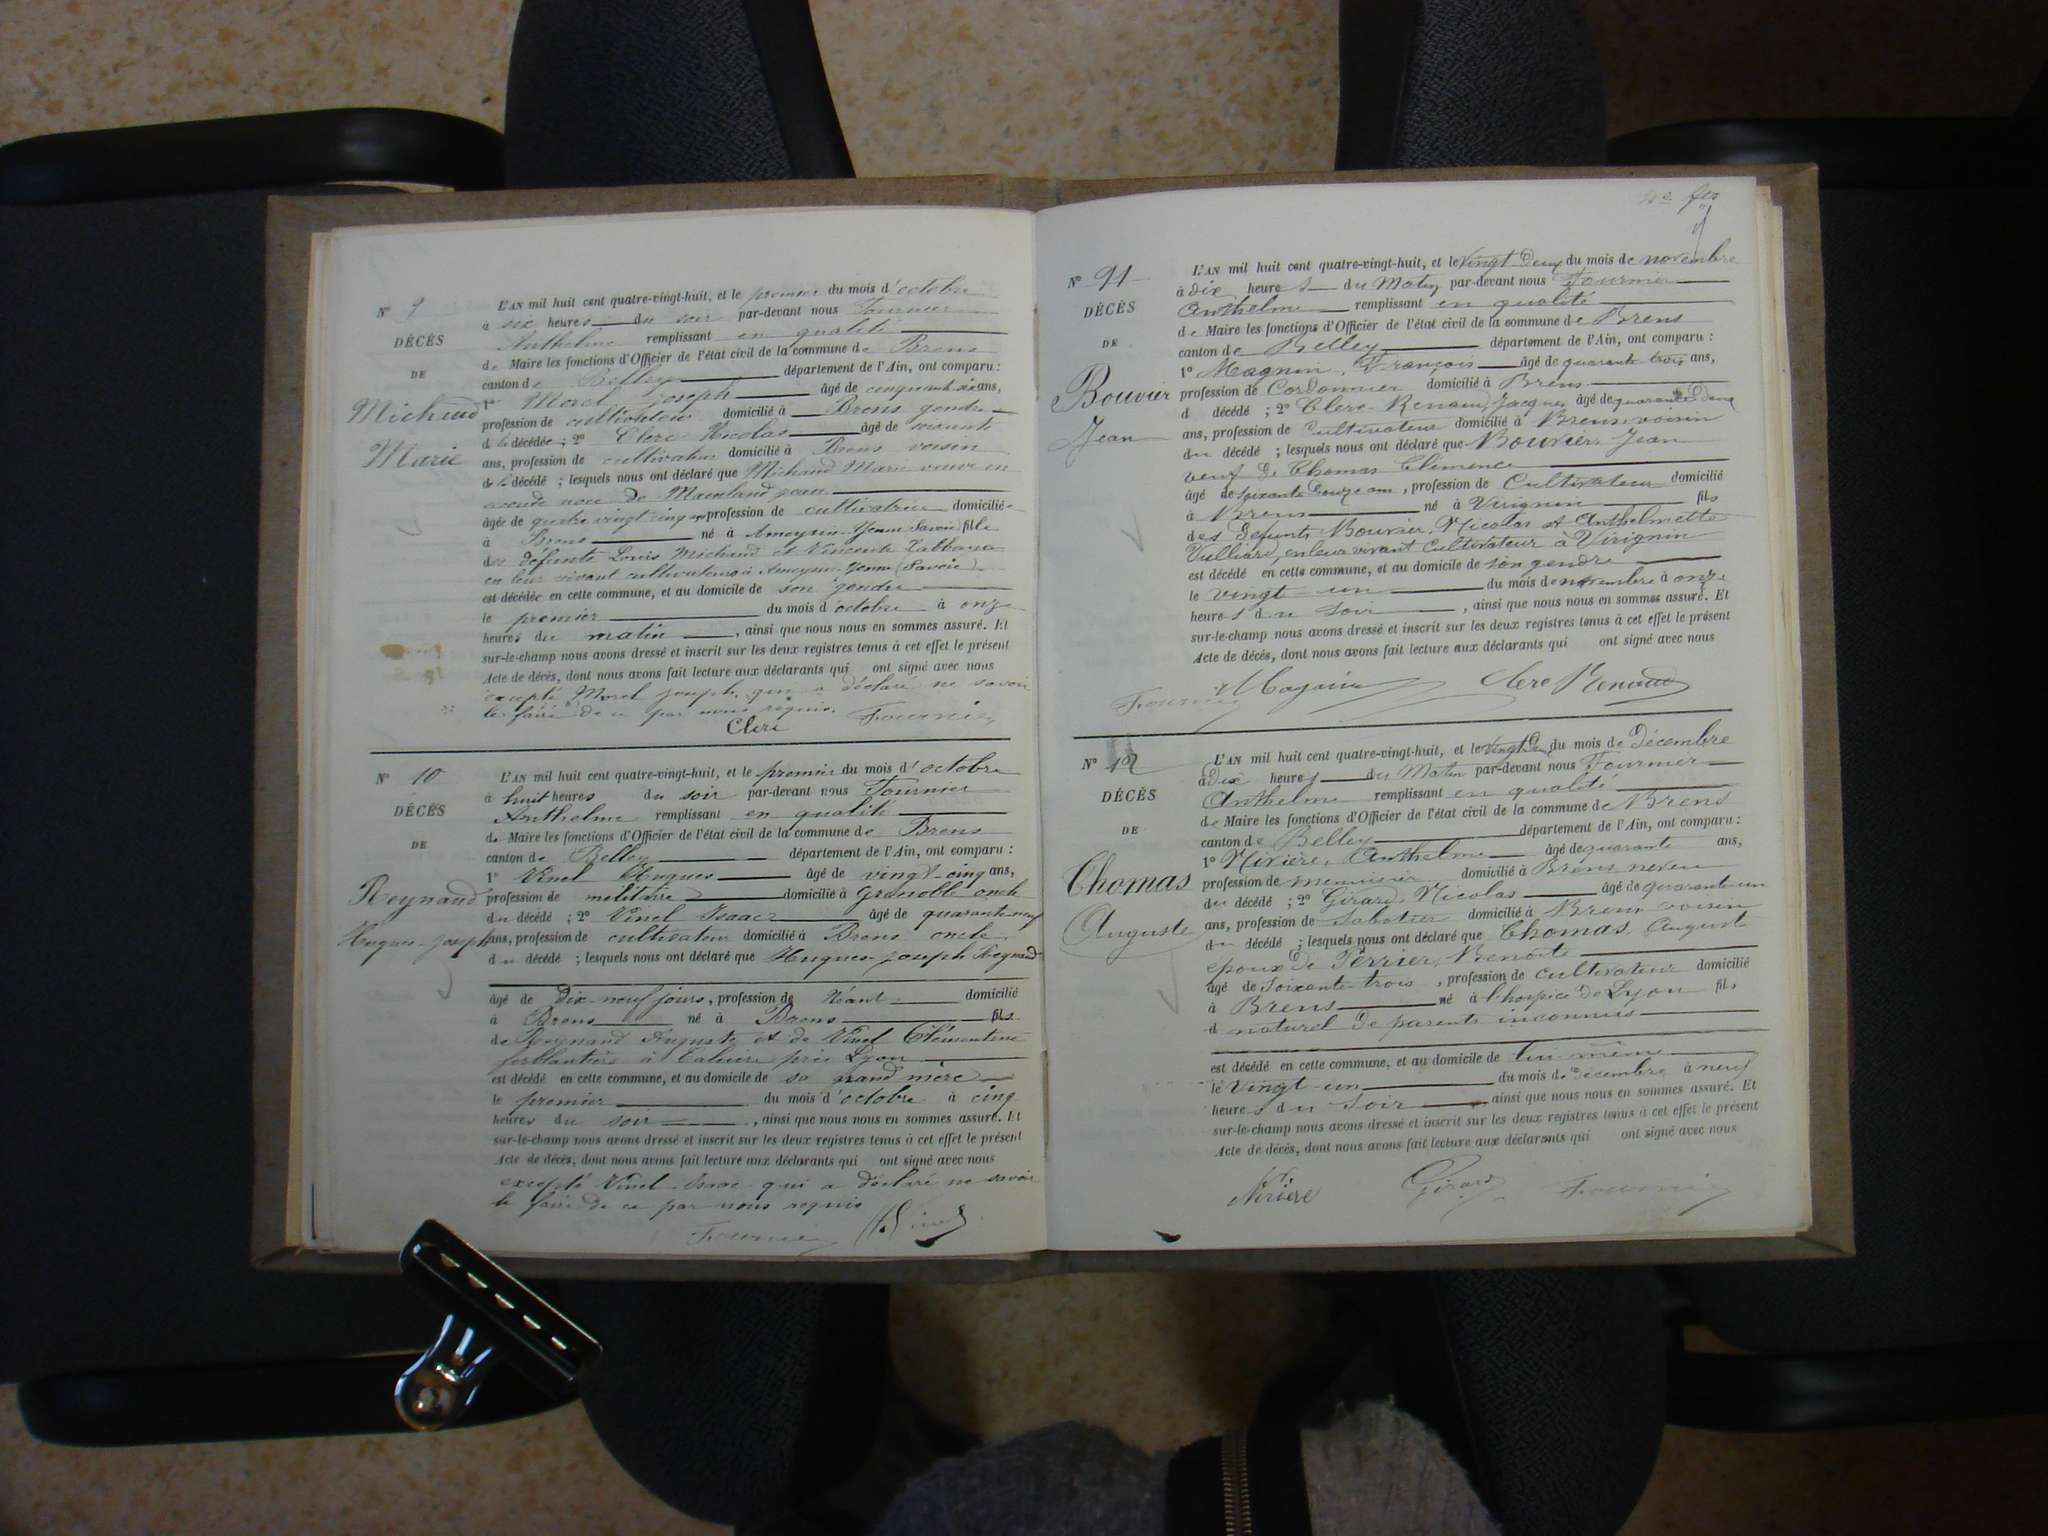 N° 9
DÉCÈS
DE
Michaud
Marie
L'AN mil huit cent quatre-vingt-huit, et le premier du mois d'octobre
à six heures du soir par-devant nous Fournier
Anthelme remplissant en qualité
de Maire les fonctions d'Officier de l'état civil de la commune de Brens
canton de Belley département de l'Ain, ont comparu :
1° Morel Joseph âgé de cinquante-six ans,
profession de cultivateur domicilié à Brens gendre
de la décédée ; 2° Clerc Nicolas âgé de soixante
ans, profession de cultivateur domicilié à Brens voisin
de la décédé ; lesquels nous ont déclaré que Michaud Marie veuve en
seconde noce de Mainland jean
âgée de quatre vingt cinq ans profession de cultivatrice domiciliée
à Brens né à Ameysin-Yenne (Savoie) fille
des défunts Louis Michaud et Vincente
en leur vivant cultivateurs à Ameysin-Yenne (Savoie)
est décédée en cette commune, et au domicile de son gendre
le premier du mois d'octobre à onze
heures du matin, ainsi que nous nous en sommes assuré. Et
sur-le-champ nous avons dressé et inscrit sur les deux registres tenus à cet effet le présent
Acte de décès, dont nous avons fait lecture aux déclarants qui ont signé avec nous
excepté Morel joseph, qui a déclaré ne savoir
le faire de ce par nous requis. Fournier
Clerc
N° 10
DÉCÈS
DE
Reynaud
Hugues-joseph
L'AN mil huit cent quatre-vingt-huit, et le premier du mois d'octobre
à huit heures du soir par-devant nous Fournier
Anthelme remplissant en qualité
de Maire les fonctions d'Officier de l'état civil de la commune de Brens
canton de Belley département de l'Ain, ont comparu :
1° Vinel Hugues âgé de vingt-cinq ans,
profession de militaire domicilié à Grenoble oncle
du décédé ; 2° Vinel Isaac âgé de quarante-neuf
ans, profession de cultivateur domicilié à Brens oncle
du décédé ; lesquels nous ont déclaré que Hugues-joseph Reynaud
âgé de dix-neuf jours, profession de Néant domicilié
à Brens né à Brens fils
de Reynaud Auguste et de Vinel Clémentine
ferblantiers à Caluire près Lyon
est décédé en cette commune, et au domicile de sa grand mère
le premier du mois d'octobre à cinq
heures du soir, ainsi que nous nous en sommes assuré. Et
sur-le-champ nous avons dressé et inscrit sur les deux registres tenus à cet effet le présent
Acte de décès, dont nous avons fait lecture aux déclarants qui ont signé avec nous
excepté Vinel Isaac qui a déclaré ne savoir
le faire de ce par nous requis
Fournier
N° 11
DÉCÈS
DE
Bouvier
Jean
L'AN mil huit cent quatre-vingt-huit, et le vingt deux du mois de novembre
à dix heures du Matin par-devant nous Fournier
Anthelme remplissant en qualité
de Maire les fonctions d'Officier de l'état civil de la commune de Brens
canton de Belley département de l'Ain, ont comparu :
1° Magnin, François âgé de quarante-trois ans,
profession de Cordonnier domicilié à Brens
d décédé ; 2° Clerc-Renaud, Jacques âgé de quarante-deux
ans, profession de Cultivateur domicilié à Brens voisin
du décédé ; lesquels nous ont déclaré que Bouvier, Jean
veuf de Thomas Clémence
âgé de soixante douze ans, profession de Cultivateur domicilié
à Brens né à Virignin fils
des défunts Bouvier, Nicolas et Anthelmette
Vulliard, en leur vivant cultivateur à Virignin
est décédé en cette commune, et au domicile de son gendre
le vingt-un du mois de novembre à onze
heures du soir, ainsi que nous nous en sommes assuré. Et
sur-le-champ nous avons dressé et inscrit sur les deux registres tenus à cet effet le présent
Acte de décès, dont nous avons fait lecture aux déclarants qui ont signé avec nous
Fournier Magnin Clerc Renaud
N° 12
DÉCÈS
DE
Thomas
Auguste
L'AN mil huit cent quatre-vingt-huit, et le vingt deux du mois de Décembre
à Dix heures du Matin par-devant nous Fournier
Anthelme remplissant en qualité
de Maire les fonctions d'Officier de l'état civil de la commune de Brens
canton de Belley département de l'Ain, ont comparu :
1° Nivière, Anthelme âgé de quarante ans,
profession de menuisier domicilié à Brens neveu
du décédé ; 2° Girard, Nicolas âgé de quarante-un
ans, profession de Sabotier domicilié à Brens voisin
du décédé ; lesquels nous ont déclaré que Thomas, Auguste
époux de Perrier, Benoite
âgé de soixante-trois, profession de cultivateur domicilié
à Brens né à l'hospice de Lyon fils
d naturel de parents inconnus
est décédé en cette commune, et au domicile de lui-même
le vingt-un du mois de décembre à neuf
heures du soir ainsi que nous nous en sommes assuré. Et
sur-le-champ nous avons dressé et inscrit sur les deux registres tenus à cet effet le présent
Acte de décès, dont nous avons fait lecture aux déclarants qui ont signé avec nous
Nivière Girard Fournier